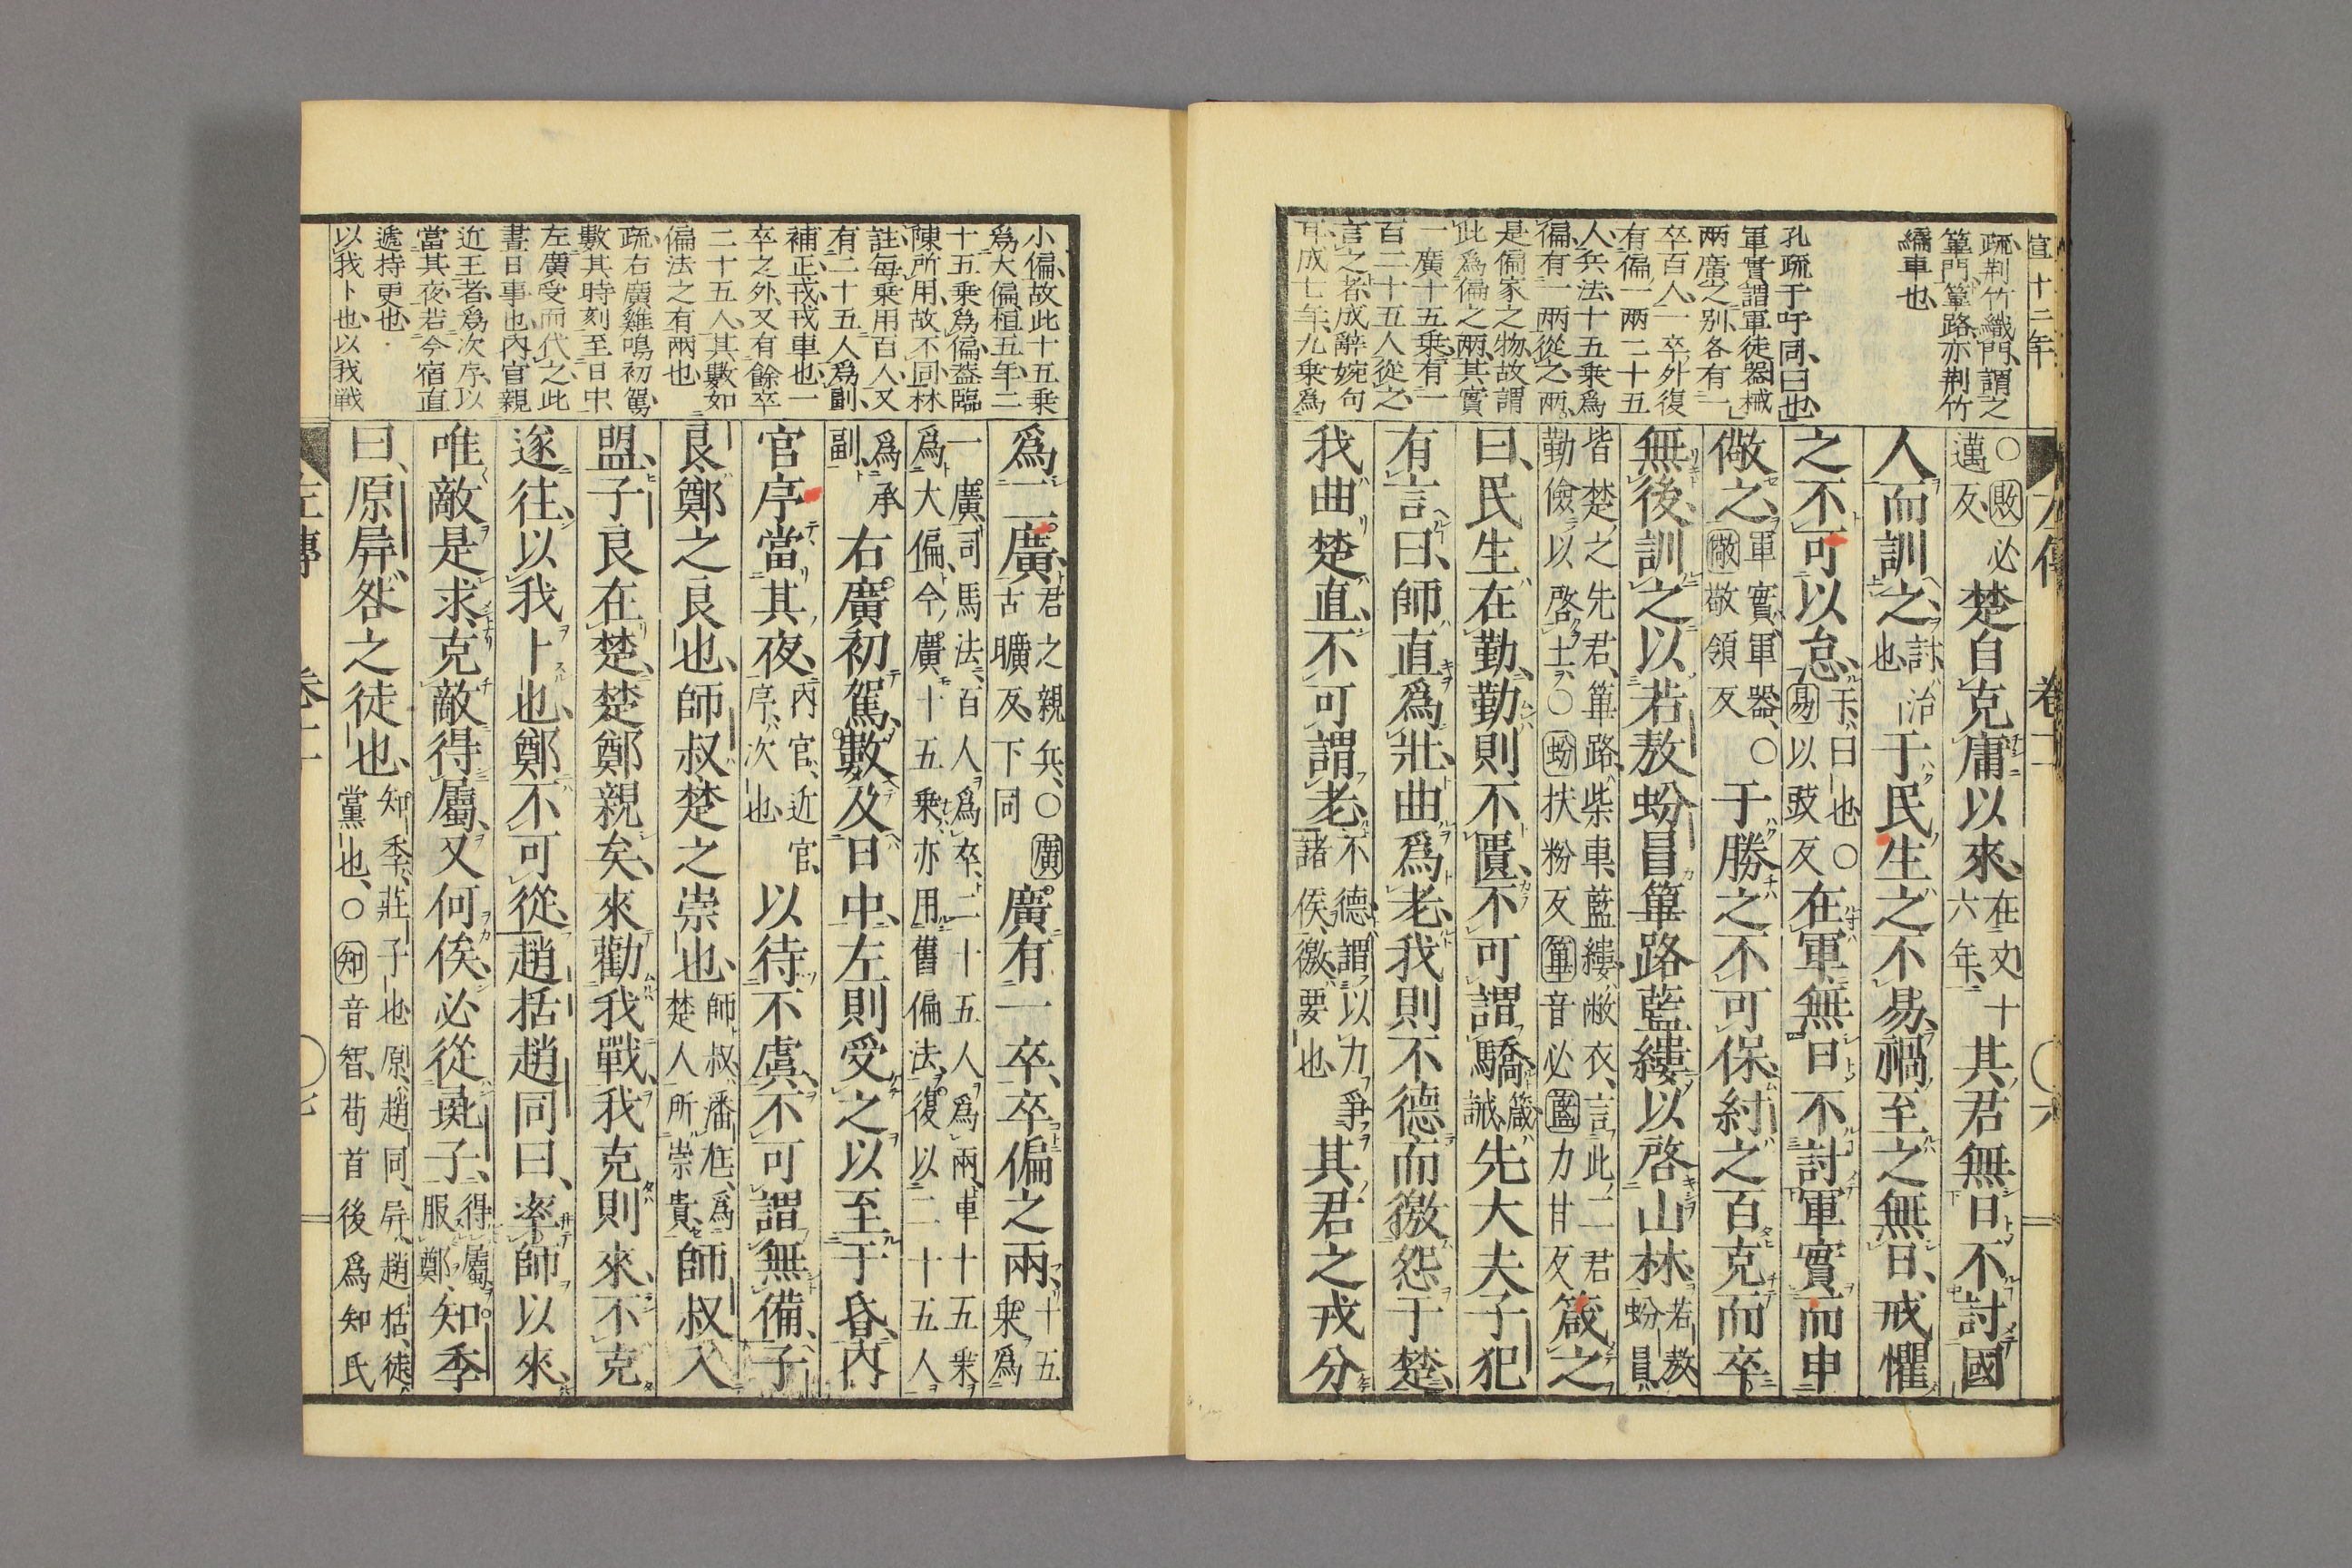 宣十二年
疏荆竹織門謂之
篳門篳路亦荆竹
編車也
孔疏于吁同曰也
軍實謂軍徒器械
兩廣之别各有一
卒百人一卒外復
有偏一兩二十五
人兵法十五乗爲
偏有一兩從之兩
是偏家之物故謂
此爲偏之兩其實
一廣十五乗有一
百二十五人從之
言之若成辭婉句
耳成七年九乗爲
〇敗必邁反楚自克庸以來在文十六年其君無日不討國
人而訓之討治也于民生之不易禍至之無日戒懼
之不可以怠于曰也〇易以豉反在軍無日不討軍實而申
儆之軍實軍器〇儆敬領反于勝之不可保紂之百克而卒
無後訓之以若敖蚡冒篳路藍縷以啓山林若敖蚡冒
皆楚之先君篳路柴車藍縷敝衣言此二君勤儉以啓土〇蚡扶粉反篳音必藍力甘反箴之
曰民生在勤勤則不匱不可謂驕箴誡先大夫子犯
有言曰師直爲壯曲爲老我則不德而徼怨于楚
我曲楚直不可謂老不德謂以力爭諸侯徼要也其君之戎分
爲二廣君之親兵〇廣古曠反下同廣有一卒卒偏之兩十五乗爲
一廣司馬法百人爲卒二十五人爲兩車十五乗爲大偏今廣十五乗亦用舊偏法復以二十五人
爲承副右廣初駕數及日中左則受之以至于昏内
官序當其夜内官近官序次也以待不虞不可謂無備子
良鄭之良也師叔楚之崇也師叔潘尫爲楚人所崇貴師叔入
盟子良在楚楚鄭親矣來勸我戰我克則來不克
遂往以我卜也鄭不可從趙括趙同曰率師以來
唯敵是求克敵得屬又何俟必從彘子得屬服鄭知季
曰原屏咎之徒也知季莊子也原趙同屏趙括徒黨也〇知音智荀首後爲知氏
小偏故此十五乗
爲大偏桓五年二
十五乗爲偏蓋臨
陳所用故不同林
註毎乗用百人又
有二十五人爲副
補正戎戎車也一
卒之外又有餘卒
二十五人其數如
偏法之有兩也
疏右廣雞鳴初駕
數其時刻至日中
左廣受而代之此
書日事也内官親
近王者爲次序以
當其夜若今宿直
遞持更也
以我卜也以我戦